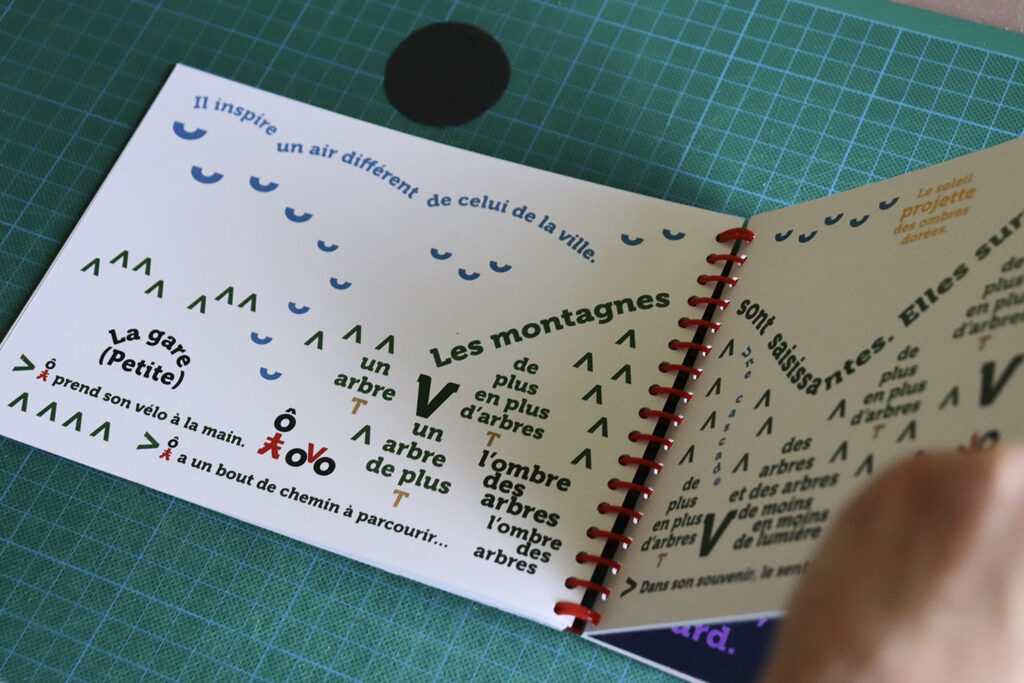 Il inspire
un air différent
de celui de la ville.
La gare
(Petite)
> ô prend son vélo à la main.
> ô a un bout de chemin à parcourir...
un
arbre
T
un
arbre
de plus
T
Les montagnes
de
plus
en plus
d'arbres
T
l'ombre
des
arbres
l'ombre
des
arbres
Le soleil
projette
des ombres
dorées.
sont saisissantes. Elles sur
cascade
de
plus
en plus
d'arbres
T
des
arbres
et des arbres
de moins
en moins
de lumière
de
plus
en plus
d'arbres
T
de
plus
en plus
d'arbres
T
> Dans son souvenir, le sent
ard.